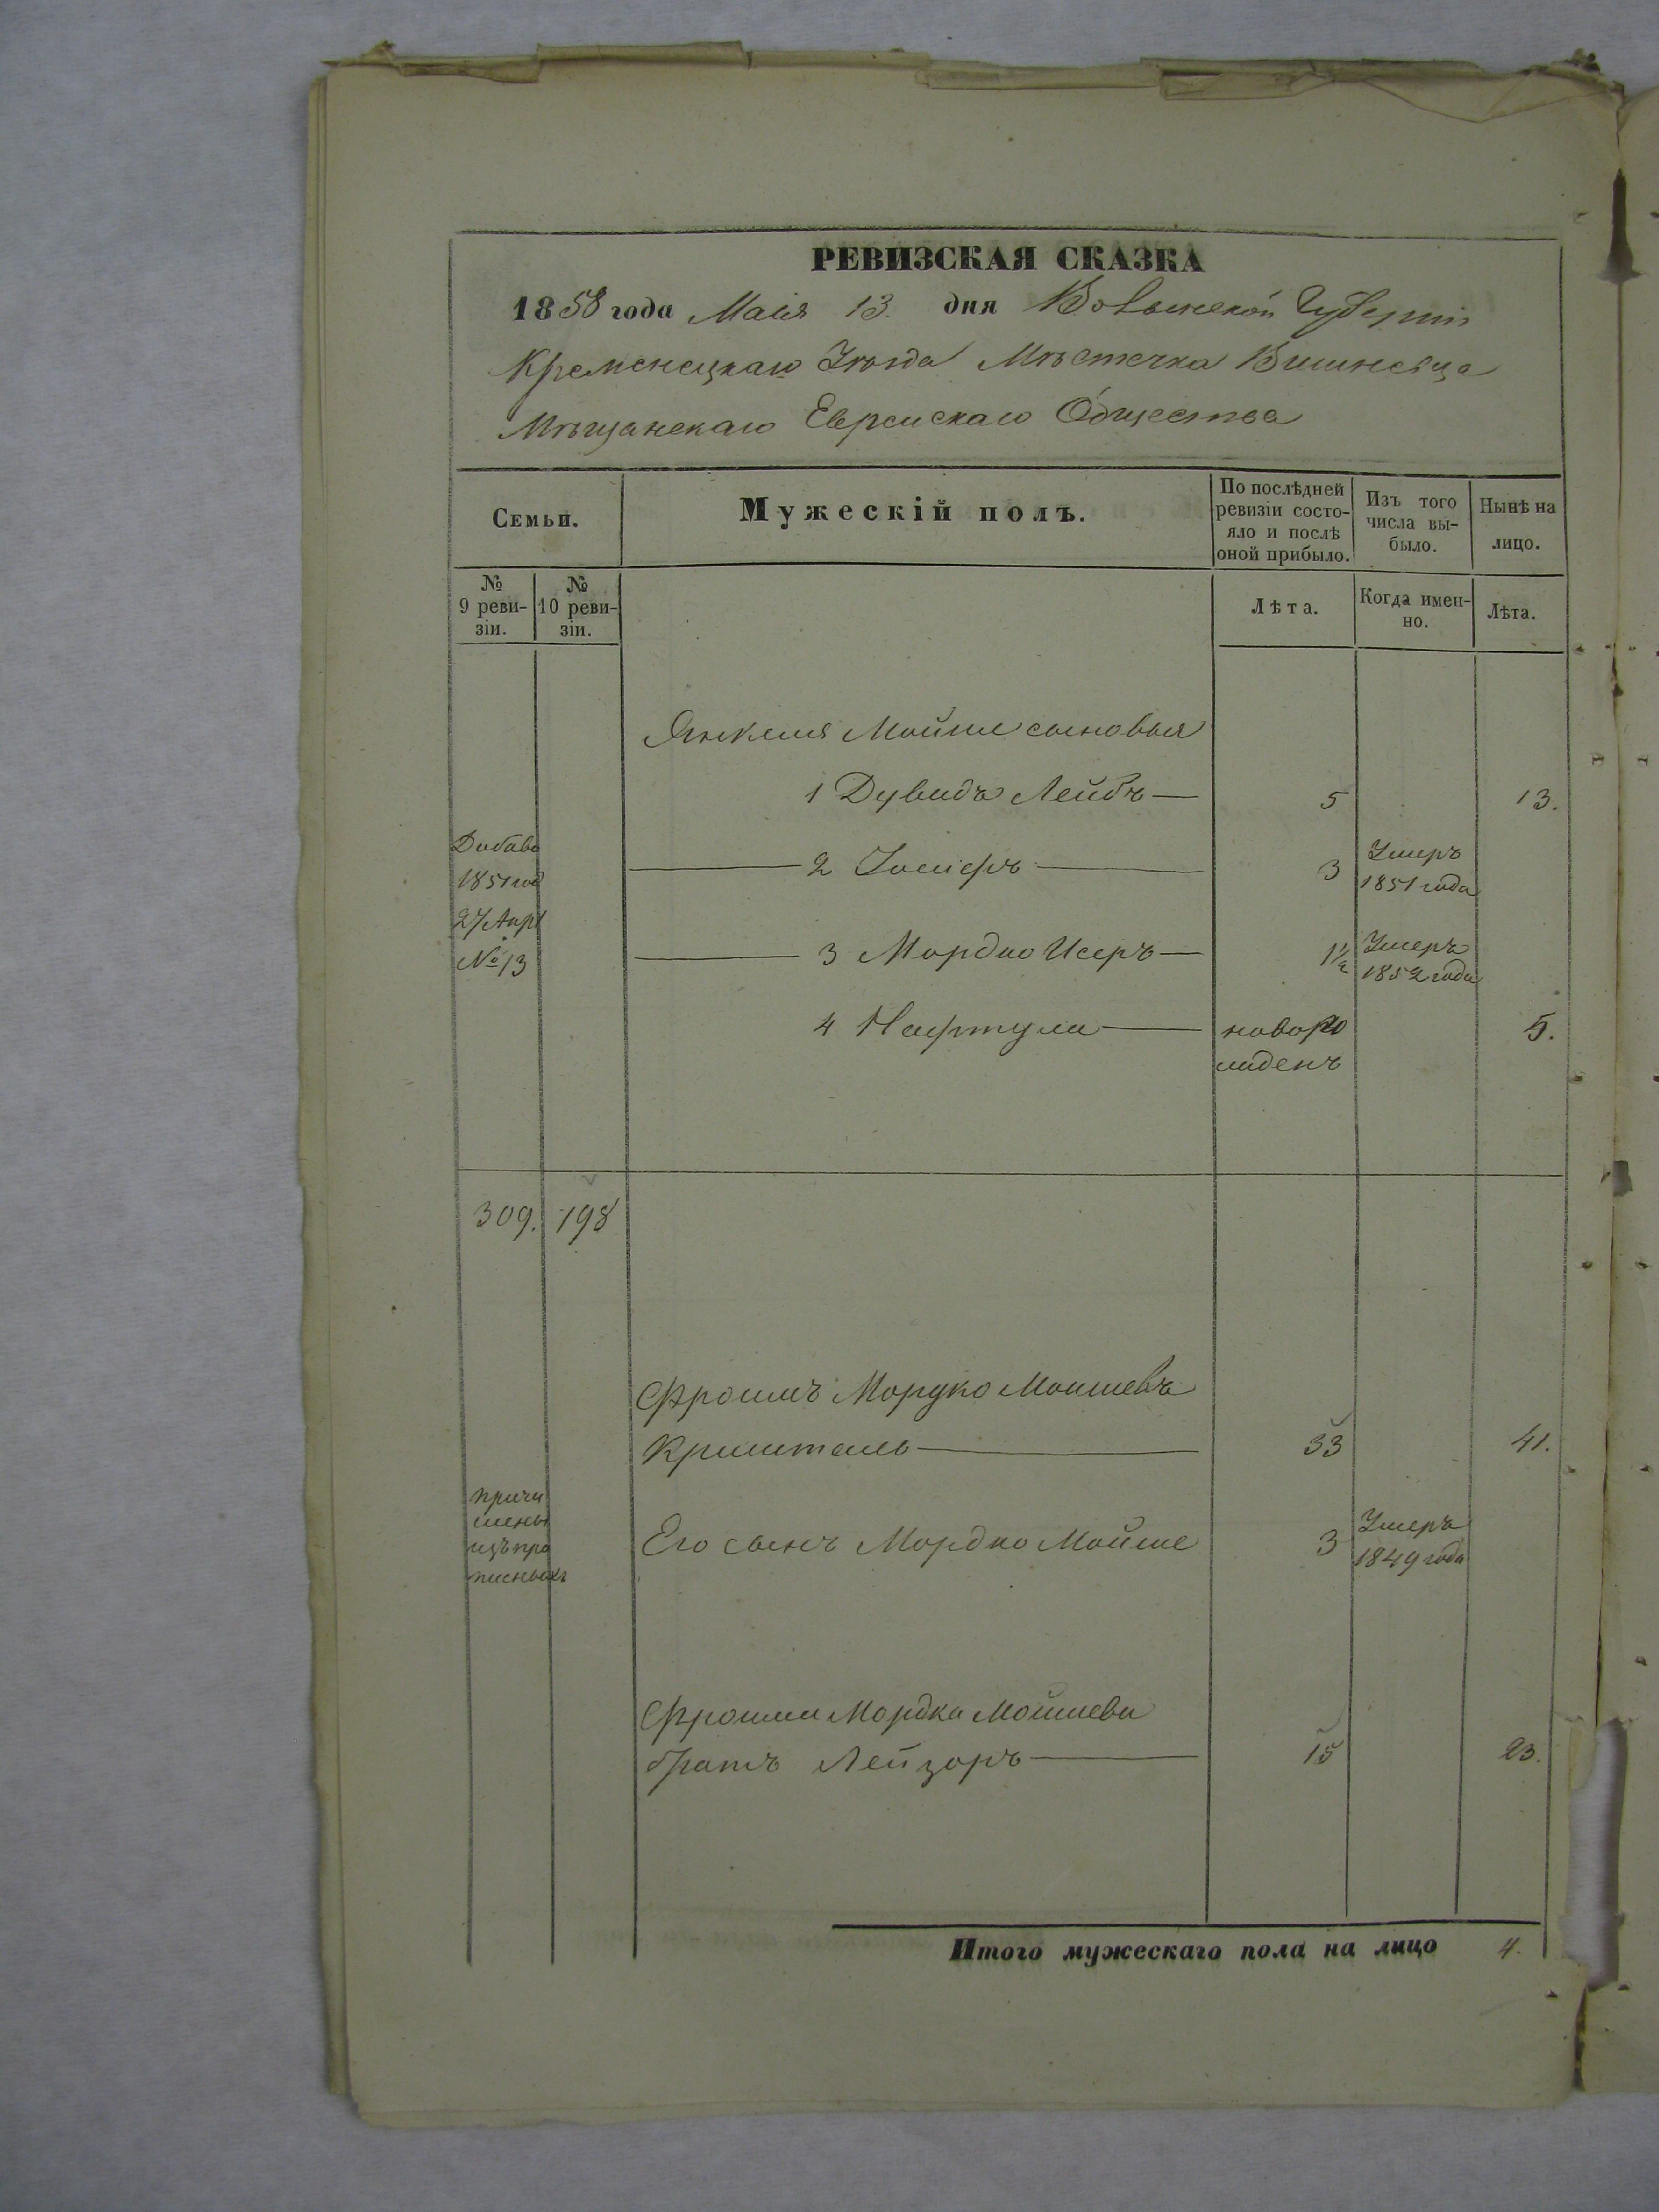 РЕВИЗСКАЯ СКАЗКА
1858 года Маія 13. дня Волынской Губерніи
Кременецкаго Уѣзда Мѣстечка Вишневца
Мѣщанскаго Еврейскаго Общества
Семьи.
Мужескій полъ.
По послѣдней ревизіи состо-
яло и послѣ оной прибыло.
Изъ того числа вы-
было.
Нынѣ на лицо.
№ 9 реви-
зіи.
№ 10 реви-
зіи.
Лѣта.
Когда имен-
но.
Лѣта.
Янкеля Мойше сыновья
1 Дувидъ Лейбъ — 5 13.
Добаво
1851 год
27 Апрл
№ 13
2 Іосифъ — 3 Умеръ
1851 года
3 Мордко Исеръ — 1½ Умеръ
1852 года
4 Нафтула — новоро 5.
жденъ
309. 198
Фроимъ Мордко Мошиевъ
Криштель — 33 41.
причи
слены
изъ про
писныхъ
Его сынъ Мордко Мойше 3 Умеръ
1849 года
Фроима Мордка Мойшева
братъ Лейзоръ — 15 23.
Итого мужескаго пола на лицо 4.